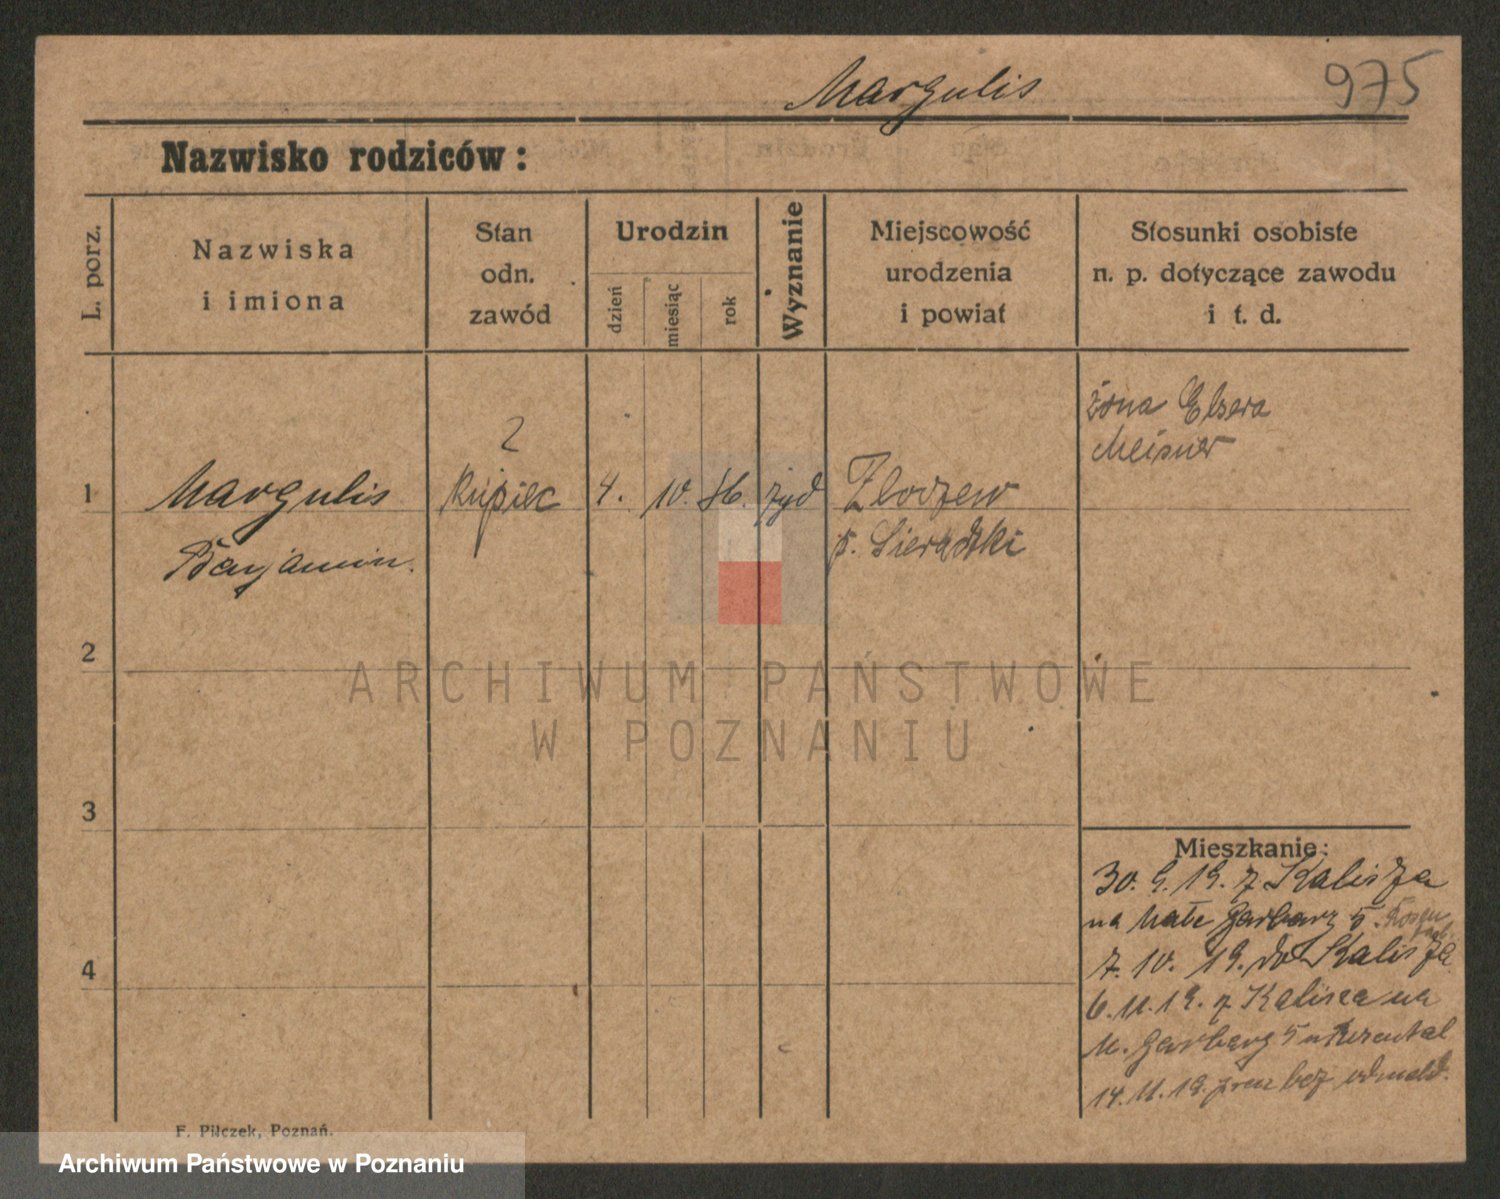 Margulis
975
Nazwisko rodziców:
L. porz.
Nazwiska
i imiona
Stan
odn.
zawód
Urodzin
dzień
miesiąc
rok
Wyznanie
Miejscowość
urodzenia
i powiat
Stosunki osobiste
n. p. dotyczące zawodu
i t. d.
żona Elzera
Meisner
1
Margulis
Benjamin.
2
Kupiec
4.
10.
86.
żyd
Zloczew
p. Sieradzki
2
3
4
Mieszkanie:
30. 9. 19. z Kalisza
na Małe Garbary 5.
7. 10. 19. do Kalisza
6. 11. 19. z Kalisza na
M. Garbary 5
14. 11. 19. bez odmeld.
F. Pilczek, Poznań.
ARCHIWUM PAŃSTWOWE
W POZNANIU
Archiwum Państwowe w Poznaniu